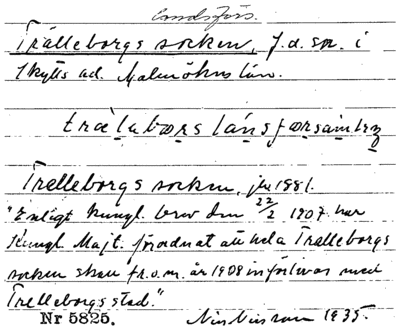 Landsförs.
Trälleborgs socken, f.d. sn. i
Skytts hd. Malmöhus län.
træ̀labœrs lánsfœrsamlıŋ
Trelleborgs socken, jb 1881.
"Enligt kungl. brev den 22/2 1907 har
Kungl. Majt. förordnat att hela Trälleborgs
socken skall fr.o.m. år 1908 införlivas med
Trelleborgs stad."
Nr 5825. Nils Nilsson 1935.